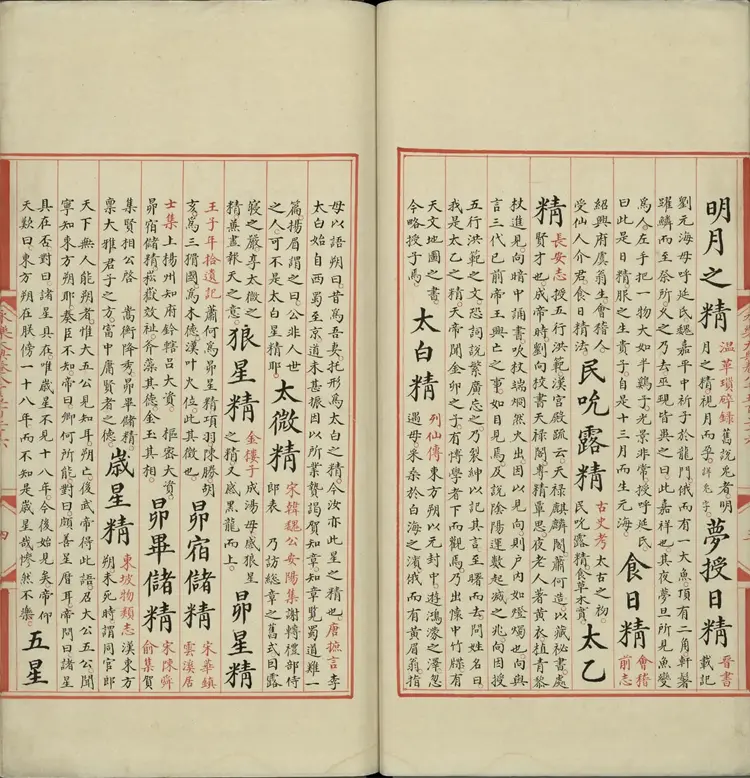 明月之精
溫革瑣碎錄舊說兔者明
月之精視月而孕。詳兔字。
夢授日精
晉書
載記
劉元海母呼延氏魏嘉平中祈子於龍門俄而有一大魚頂有二角軒鬐
躍鱗而至祭所久之乃去巫覡皆異之曰此嘉祥也其夜夢旦所見魚變
為人左手把一物大如半鷄子光景非常授呼延氏
曰此是日精服之生貴子自是十三月而生元海。
食日精
會稽
前志
紹興府虞翁生會稽人
受仙人介君食日精法。
民吮露精
古史考太古之初
民吮露精食草木實。
太乙
精
長安志授五行洪範漢宮殿疏云天祿麒麟閣蕭何造以藏秘書處
賢才也成帝時劉向校書天祿閣專精覃思夜老人著黃衣植青藜
杖進見向暗中誦書吹杖端烱然火出因以見向則户内如燈燭也向與
言三代已前帝王興亡之事如目見焉及說陰陽運數起滅之兆向因授
五行洪範之文恐詞說繁廣忘之乃裂紳以記其言至曙而去問姓名曰
我是太乙之精天帝聞金卯之子有博學者下而觀焉乃出懷中竹牒有
天文地圖之書
今略授子焉
太白精
列仙傳東方朔以元封中遊鴻濛之澤忽
遇母采桑於白海之濱俄而有黃眉翁指
母以語朔曰昔為吾妻托形為太白之精今汝亦此星之精也唐摭言李
太白始自西蜀至京道未甚振因以所業贄謁賀知章知章覽蜀道難一
篇揚眉謂之曰公非人世
之人可不是太白星精耶
太微精
宋韓魏公安陽集謝轉禮部侍
郎表乃訪總章之舊式因露
寢之嚴尊太微之
精焉盡報天之意
狼星精
金樓子成湯母感狼星
之精又感黑龍而上。
昴星精
王子年拾遺記蕭何為昴星精項羽陳勝胡
亥為三猾國為木德漢叶火位此其徵也
昴宿儲精
宋華鎮
雲溪居
士集上揚州知府鈐轄呂大資樞密大資
昴宿儲精菘嶽效祉斧藻其德金玉其相。
昴畢儲精
宋陳舜
俞集賀
集賢相公啓嵩衡降秀昴畢儲精
稟大雅君子之方富中庸賢者之德
歲星精
東坡物類志漢東方
朔未死時謂同官郎
天下無人能朔者惟大五公見知耳朔亡後武帝得此語召大公五公聞
寧知東方朔耶奏臣不知帝曰卿何所能對曰頗善星曆耳帝問曰諸星
具在否對曰諸星具在唯歲星不見十八年今後始見矣帝仰
天歎曰東方朔在朕傍一十八年而不知是歲星哉慘然不樂
五星